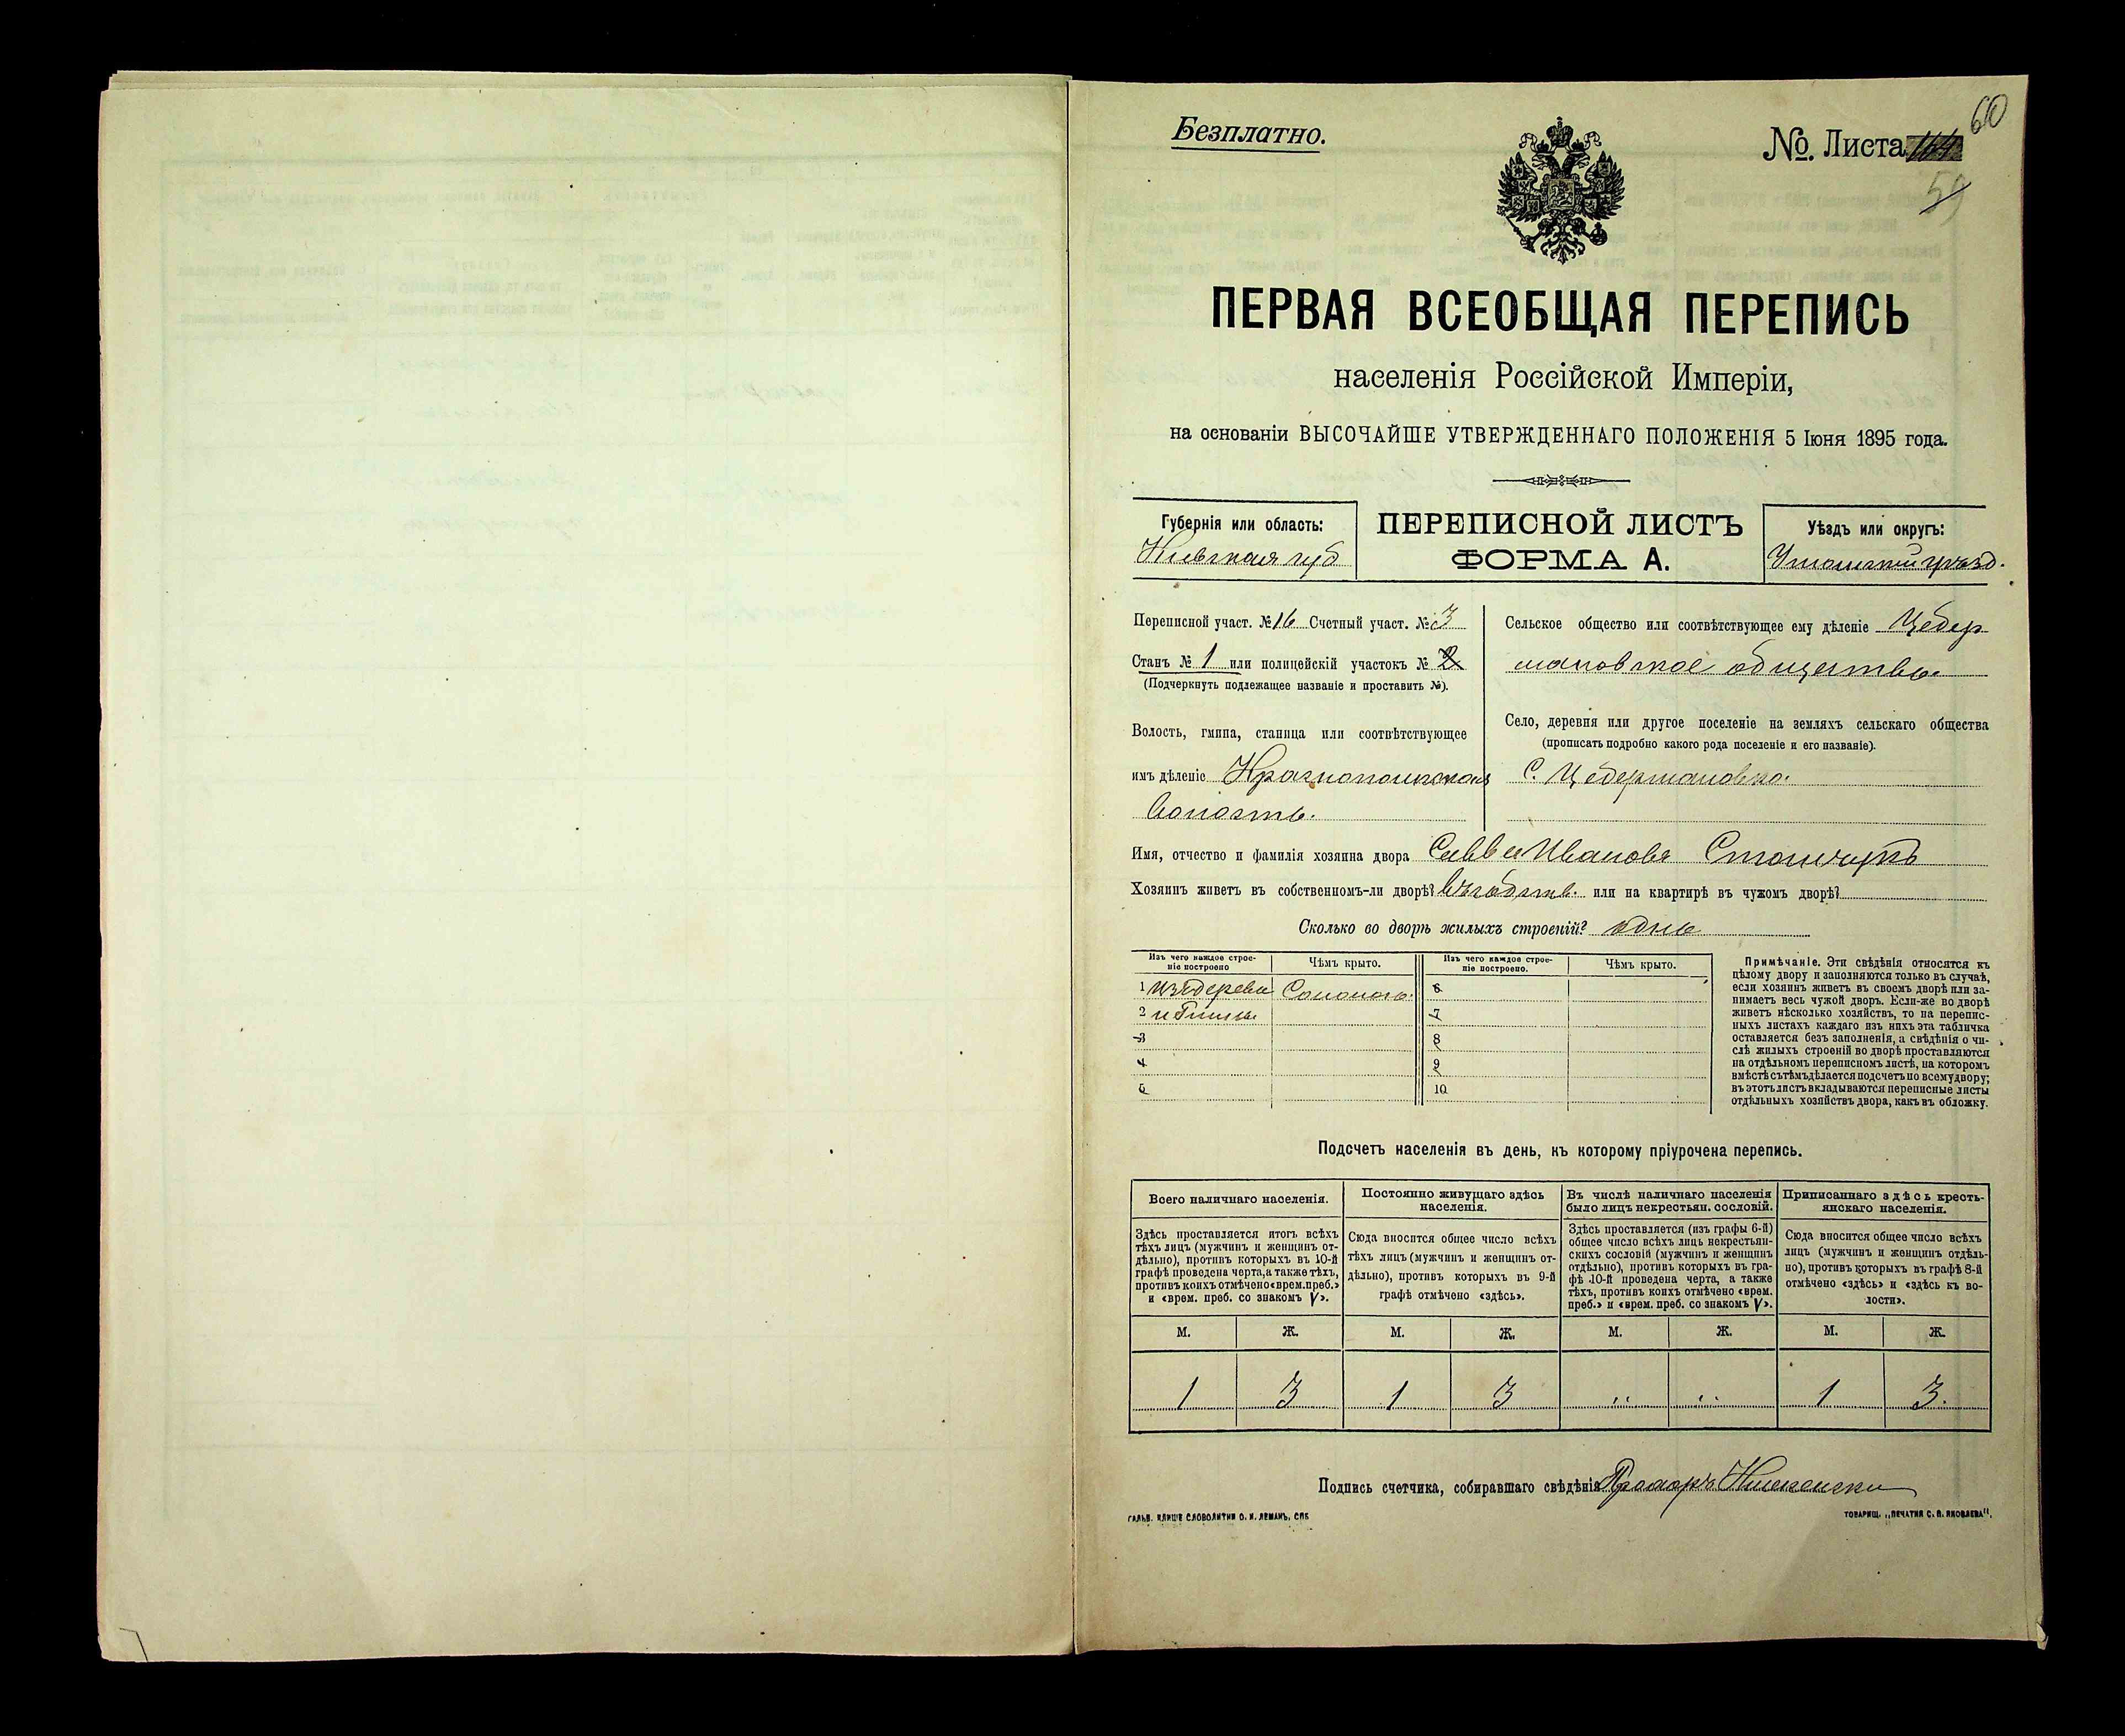 Безплатно.
№. Листа 164
60
59
ПЕРВАЯ ВСЕОБЩАЯ ПЕРЕПИСЬ
населенія Россійской Имперіи,
на основаніи ВЫСОЧАЙШЕ УТВЕРЖДЕННАГО ПОЛОЖЕНІЯ 5 Іюня 1895 года.
Губернія или область:
Кіевская губ
ПЕРЕПИСНОЙ ЛИСТЪ
ФОРМА А.
Уѣздъ или округъ:
Уманскій уѣзд.
Переписной участ. № 16 Счетный участ. № 3
Станъ № 1 или полицейскій участокъ № 2
(Подчеркнуть подлежащее названіе и проставить №).
Волость, гмина, станица или соотвѣтствующее
имъ дѣленіе Краснопольская
волость.
Сельское общество или соотвѣтствующее ему дѣленіе Цебер
мановское общество.
Село, деревня или другое поселеніе на земляхъ сельскаго общества
(прописать подробно какого рода поселеніе и его названіе).
С. Цебермановка.
Имя, отчество и фамилія хозяина двора Савва Ивановъ
Хозяинъ живетъ въ собственномъ-ли дворѣ? въ собств. или на квартирѣ въ чужомъ дворѣ?
Сколько во дворѣ жилыхъ строеній? одно
Изъ чего каждое строе-
ніе построено
Чѣмъ крыто.
Изъ чего каждое строе-
ніе построено.
Чѣмъ крыто.
1 изъ дерева Соломою. 6
2 и глины 7
3 8
4 9
5 10
Примѣчаніе. Эти свѣдѣнія относятся къ
цѣлому двору и заполняются только въ случаѣ,
если хозяинъ живетъ въ своемъ дворѣ или за-
нимаетъ весь чужой дворъ. Если-же во дворѣ
живетъ нѣсколько хозяйствъ, то на перепис-
ныхъ листахъ каждаго изъ нихъ эта табличка
оставляется безъ заполненія, а свѣдѣнія о чи-
слѣ жилыхъ строеній во дворѣ проставляются
на отдѣльномъ переписномъ листѣ, на которомъ
вмѣстѣ съ тѣмъ дѣлается подсчетъ по всему двору;
въ этотъ листъ вкладываются переписные листы
отдѣльныхъ хозяйствъ двора, какъ въ обложку.
Подсчетъ населенія въ день, къ которому пріурочена перепись.
Всего наличнаго населенія.
Здѣсь проставляется итогъ всѣхъ
тѣхъ лицъ (мужчинъ и женщинъ от-
дѣльно), противъ которыхъ въ 10-й
графѣ проведена черта, а также тѣхъ,
противъ коихъ отмѣчено «врем. преб.»
и «врем. преб. со знакомъ V».
Постоянно живущаго здѣсь
населенія.
Сюда вносится общее число всѣхъ
тѣхъ лицъ (мужчинъ и женщинъ от-
дѣльно), противъ которыхъ въ 9-й
графѣ отмѣчено «здѣсь».
Въ числѣ наличнаго населенія
было лицъ некрестьян. сословій.
Здѣсь проставляется (изъ графы 6-й)
общее число всѣхъ лицъ некрестьян-
скихъ сословій (мужчинъ и женщинъ
отдѣльно), противъ которыхъ въ гра-
фѣ 10-й проведена черта, а также
тѣхъ, противъ коихъ отмѣчено «врем.
преб.» и «врем. преб. со знакомъ V».
Приписаннаго здѣсь кресть-
янскаго населенія.
Сюда вносится общее число всѣхъ
лицъ (мужчинъ и женщинъ отдѣль-
но), противъ которыхъ въ графѣ 8-й
отмѣчено «здѣсь» и «здѣсь къ во-
лости».
М. Ж. М. Ж. М. Ж. М. Ж.
1 3 1 3 „ „ 1 3.
Подпись счетчика, собиравшаго свѣдѣнія
ГАЛЬВ. КЛИШЕ СЛОВОЛИТНИ О. И. ЛЕМАНЪ, СПБ
ТОВАРИЩ. „ПЕЧАТНЯ С. П. ЯКОВЛЕВА“.